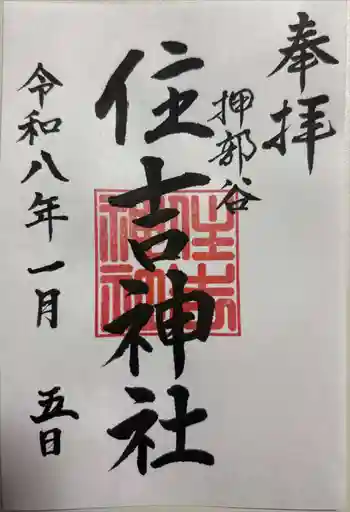 奉拝
押部谷
住吉神社
令和八年一月五日